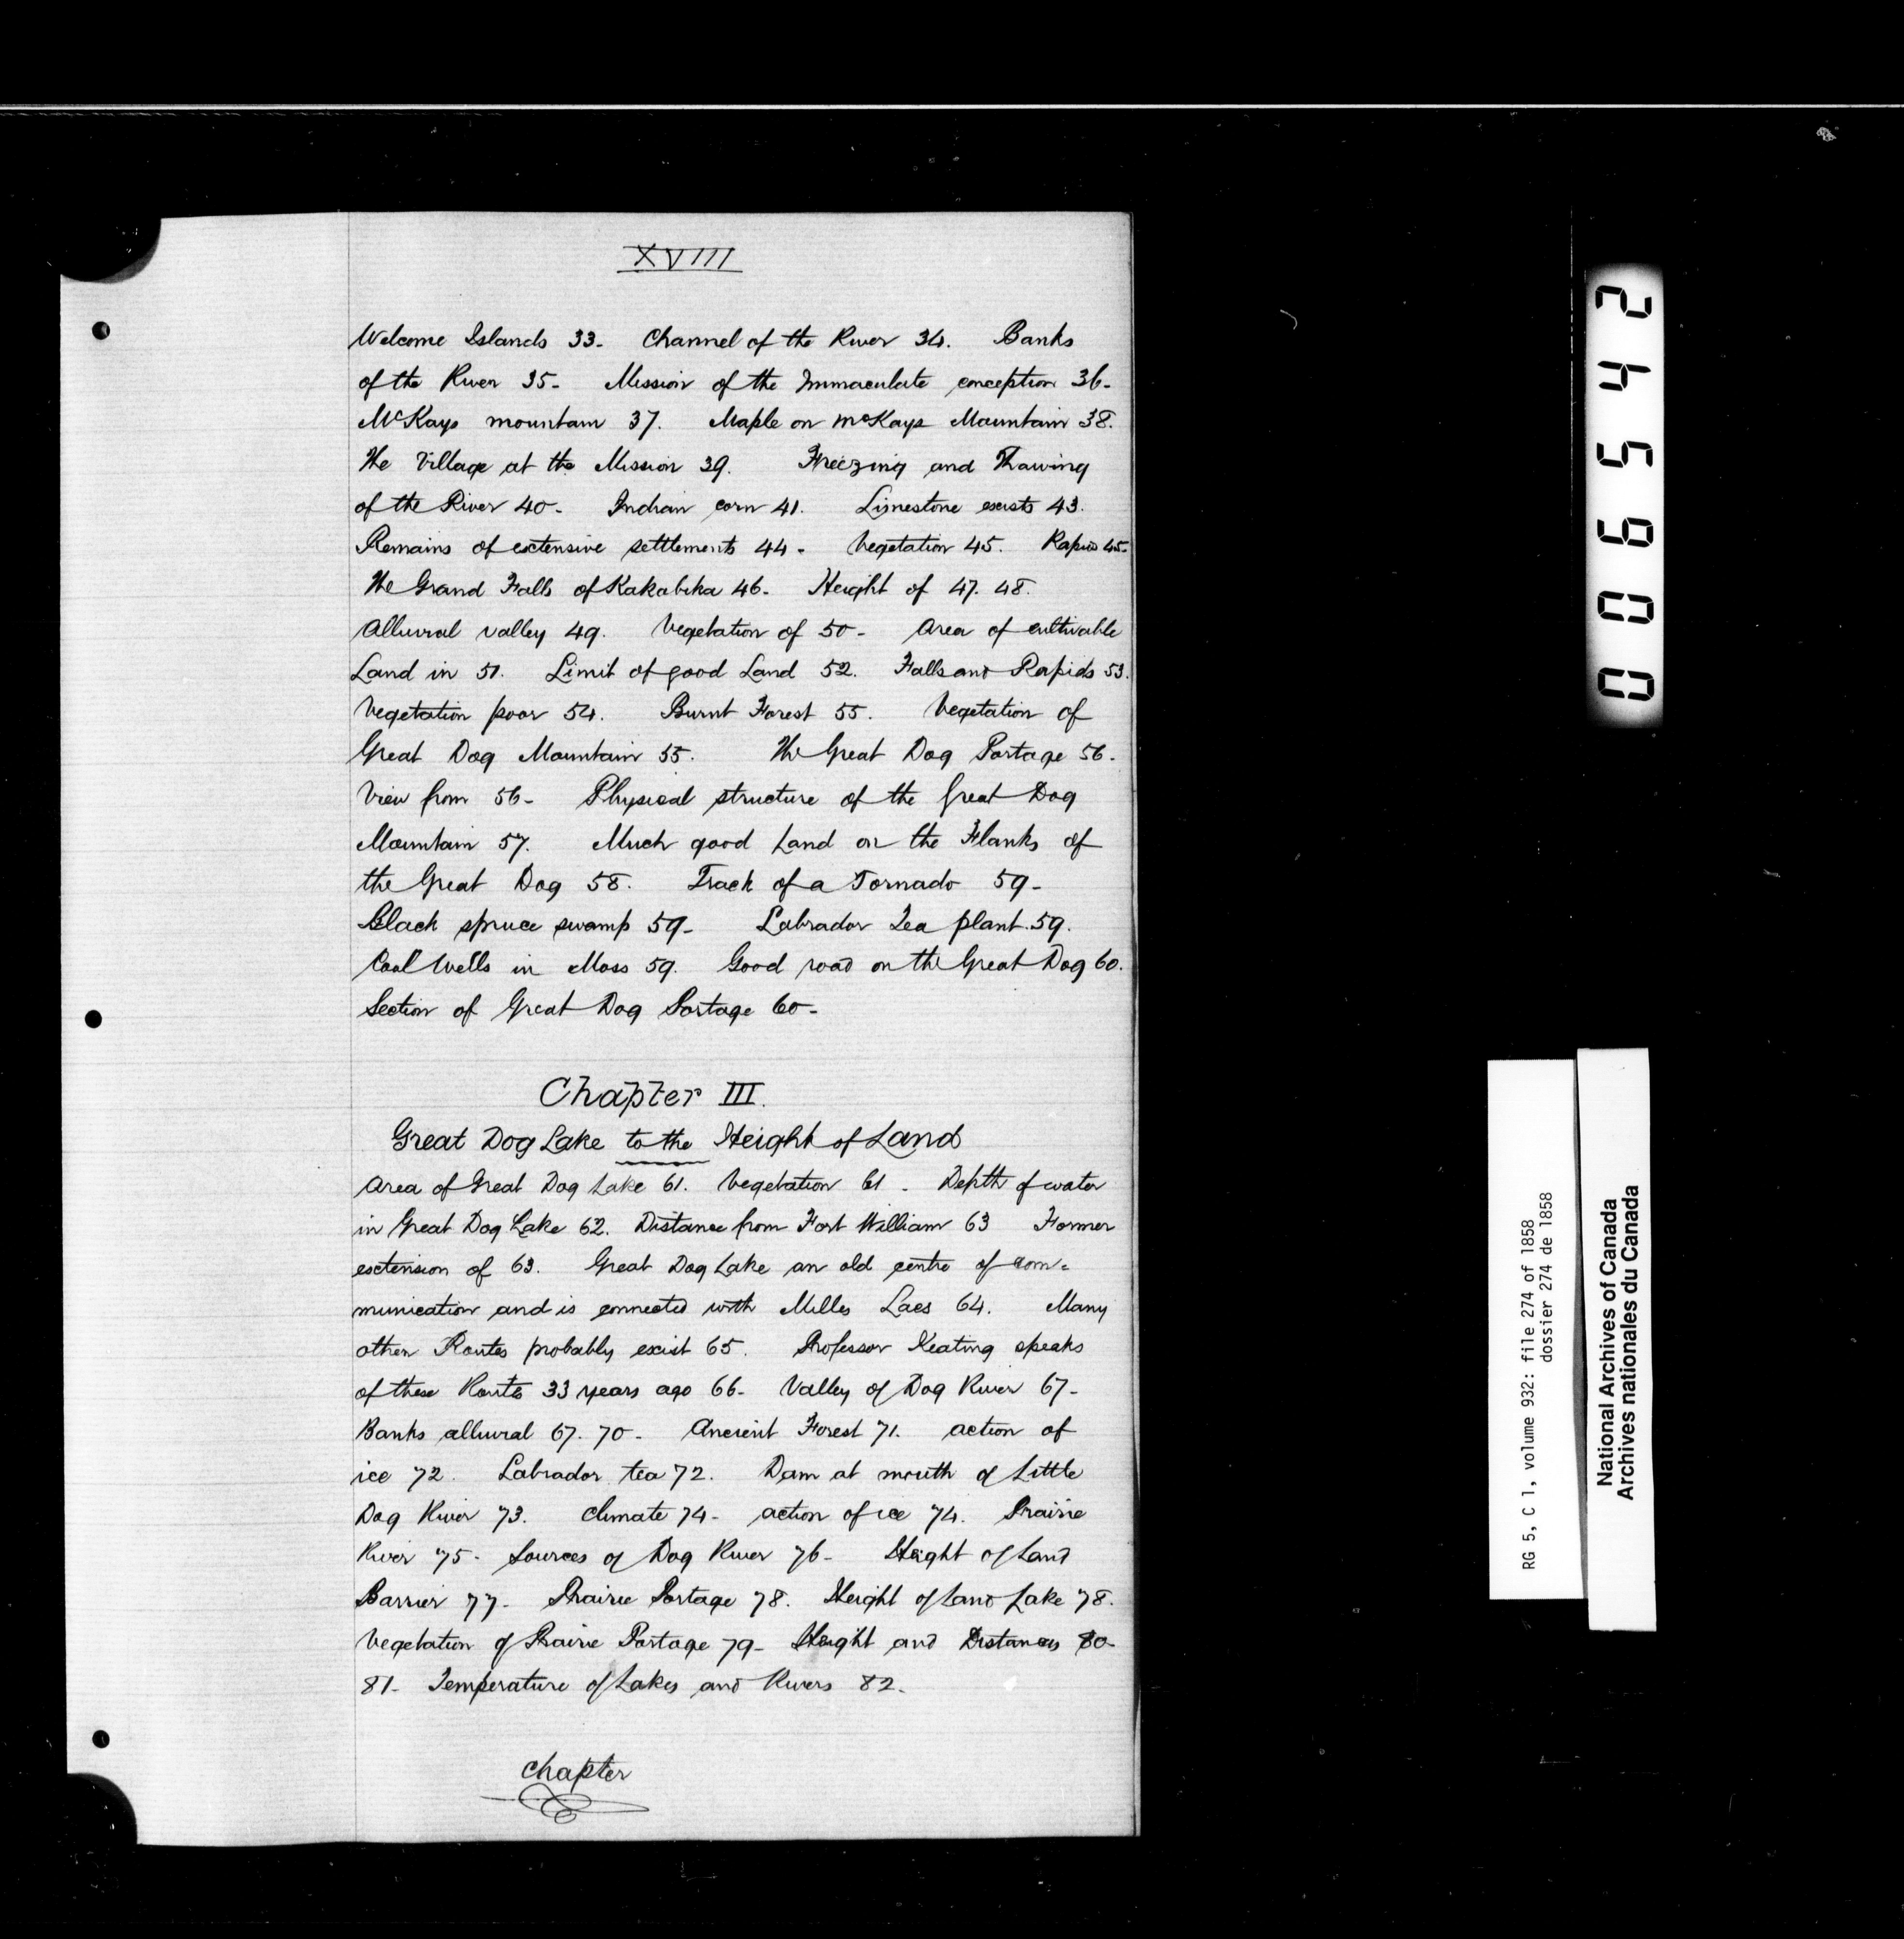 XVIII
Welcome Islands 33. Channel of the River 34. Banks
of the River 35. Mission of the Immaculate conception 36.
McKays mountain 37. Maple on McKays Mountain 38.
The Village at the Mission 39. Freezing and Thawing
of the River 40. Indian corn 41. Limestone exists 43.
Remains of extensive settlements 44. Vegetation 45. Rapids 45.
The Grand Falls of Kakabika 46. Height of 47. 48.
Alluvial valley 49. Vegetation of 50. Area of cultivable
Land in 51. Limit of good Land 52. Falls and Rapids 53.
Vegetation poor 54. Burnt Forest 55. Vegetation of
Great Dog Mountain 55. The Great Dog Portage 56.
View from 56. Physical structure of the Great Dog
Mountain 57. Much good Land on the Flanks of
the Great Dog 58. Track of a Tornado 59.
Black spruce swamp 59. Labrador Tea plant. 59.
Cool Wells in Moss 59. Good road on the Great Dog 60.
Section of Great Dog Portage 60.
Chapter III.
Great Dog Lake to the Height of Land
Area of Great Dog Lake 61. Vegetation 61. Depth of water
in Great Dog Lake 62. Distance from Fort William 63 Former
extension of 63. Great Dog Lake an old centre of com=
munication and is connected with Milles Lacs 64. Many
other Routes probably exist 65. Professor Keating speaks
of these Routes 33 years ago 66. Valley of Dog River 67.
Banks alluvial 67. 70. Ancient Forest 71. action of
ice 72. Labrador tea 72. Dam at mouth of Little
Dog River 73. Climate 74. action of ice 74. Prairie
River 75. Sources of Dog River 76. Height of Land
Barrier 77. Prairie Portage 78. Height of Land Lake 78.
Vegetation of Prairie Portage 79. Height and Distances 80.
81. Temperature of Lakes and Rivers 82.
Chapter
006542
RG 5, C 1, volume 932: file 274 of 1858
dossier 274 de 1858
National Archives of Canada
Archives nationales du Canada